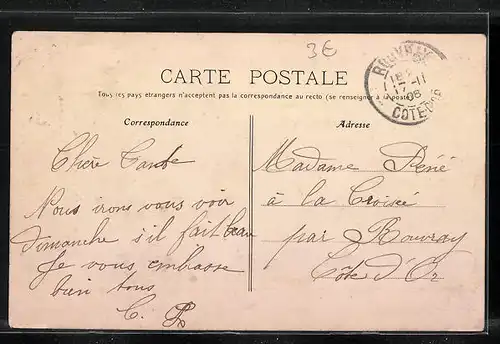 3€
CARTE POSTALE
Tous les pays étrangers n'acceptent pas la correspondance au recto (se renseigner à
Correspondance
Chère Tante
Nous irons vous voir
dimanche s'il fait beau
Je vous embrasse
bien tous
C.
Adresse
Madame René
à la Croisée
par Rouvray
Côte d'Or
ROUVRAY
17-11
08
COTE D'OR